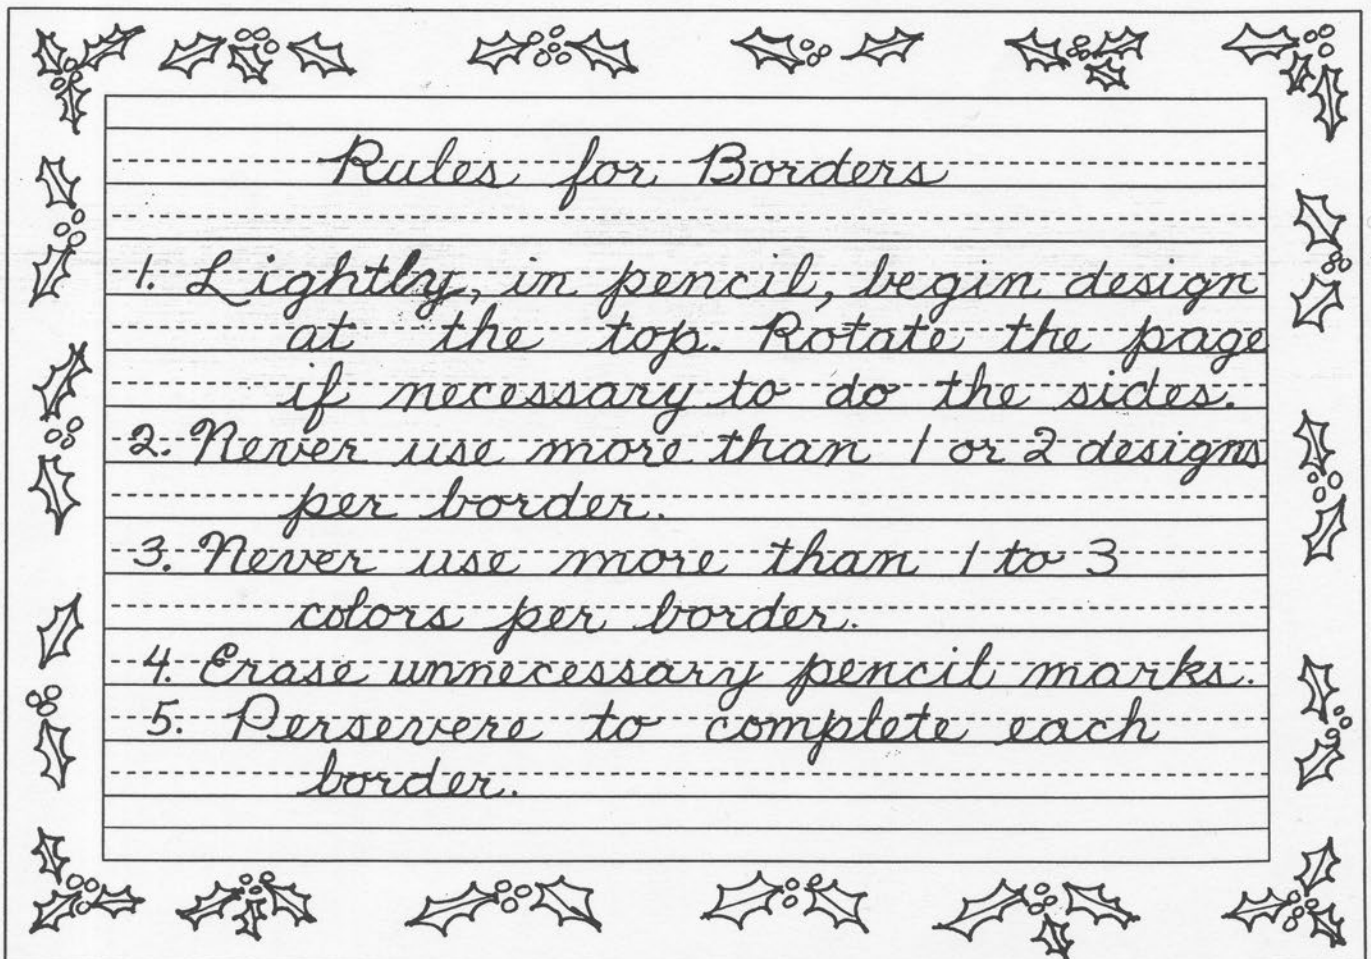 Rules for Borders
1. Lightly, in pencil, begin design
at the top. Rotate the page
if necessary to do the sides.
2. Never use more than 1 or 2 designs
per border.
3. Never use more than 1 to 3
colors per border.
4. Erase unnecessary pencil marks.
5. Persevere to complete each
border.